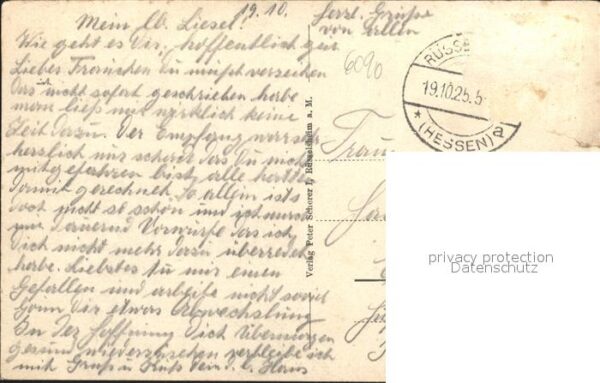 19.10.
Mein lb. Liesel!
Wie geht es Dir, hoffentlich gut
Liebes Frauchen Du musst verzeihen
das nicht sofort geschrieben habe
man ließ mir wirklich keine
Zeit dazu. Der Empfang war sehr
herzlich nur schade das Du nicht
mitgefahren bist, alle hatten
damit gerechnet. So allein ist's
doch nicht so schön und ich mache
mir dauernd Vorwürfe das ich
Dich nicht mehr dazu überredet
habe. Liebstes tu mir einen
Gefallen und arbeite nicht soviel
Gönn dir etwas Abwechslung
In der Hoffnung Dich Übermorgen
gesund wiederzusehen verbleibe ich
mit Gruß u. Kuß Dein lb. Hans
Herzl. Grüße
von Allen
6090
RÜSSE
19.10.25.5
* (HESSEN) a
Verlag Peter Scherer I, Rüsselsheim a. M.
Frau
privacy protection
Datenschutz